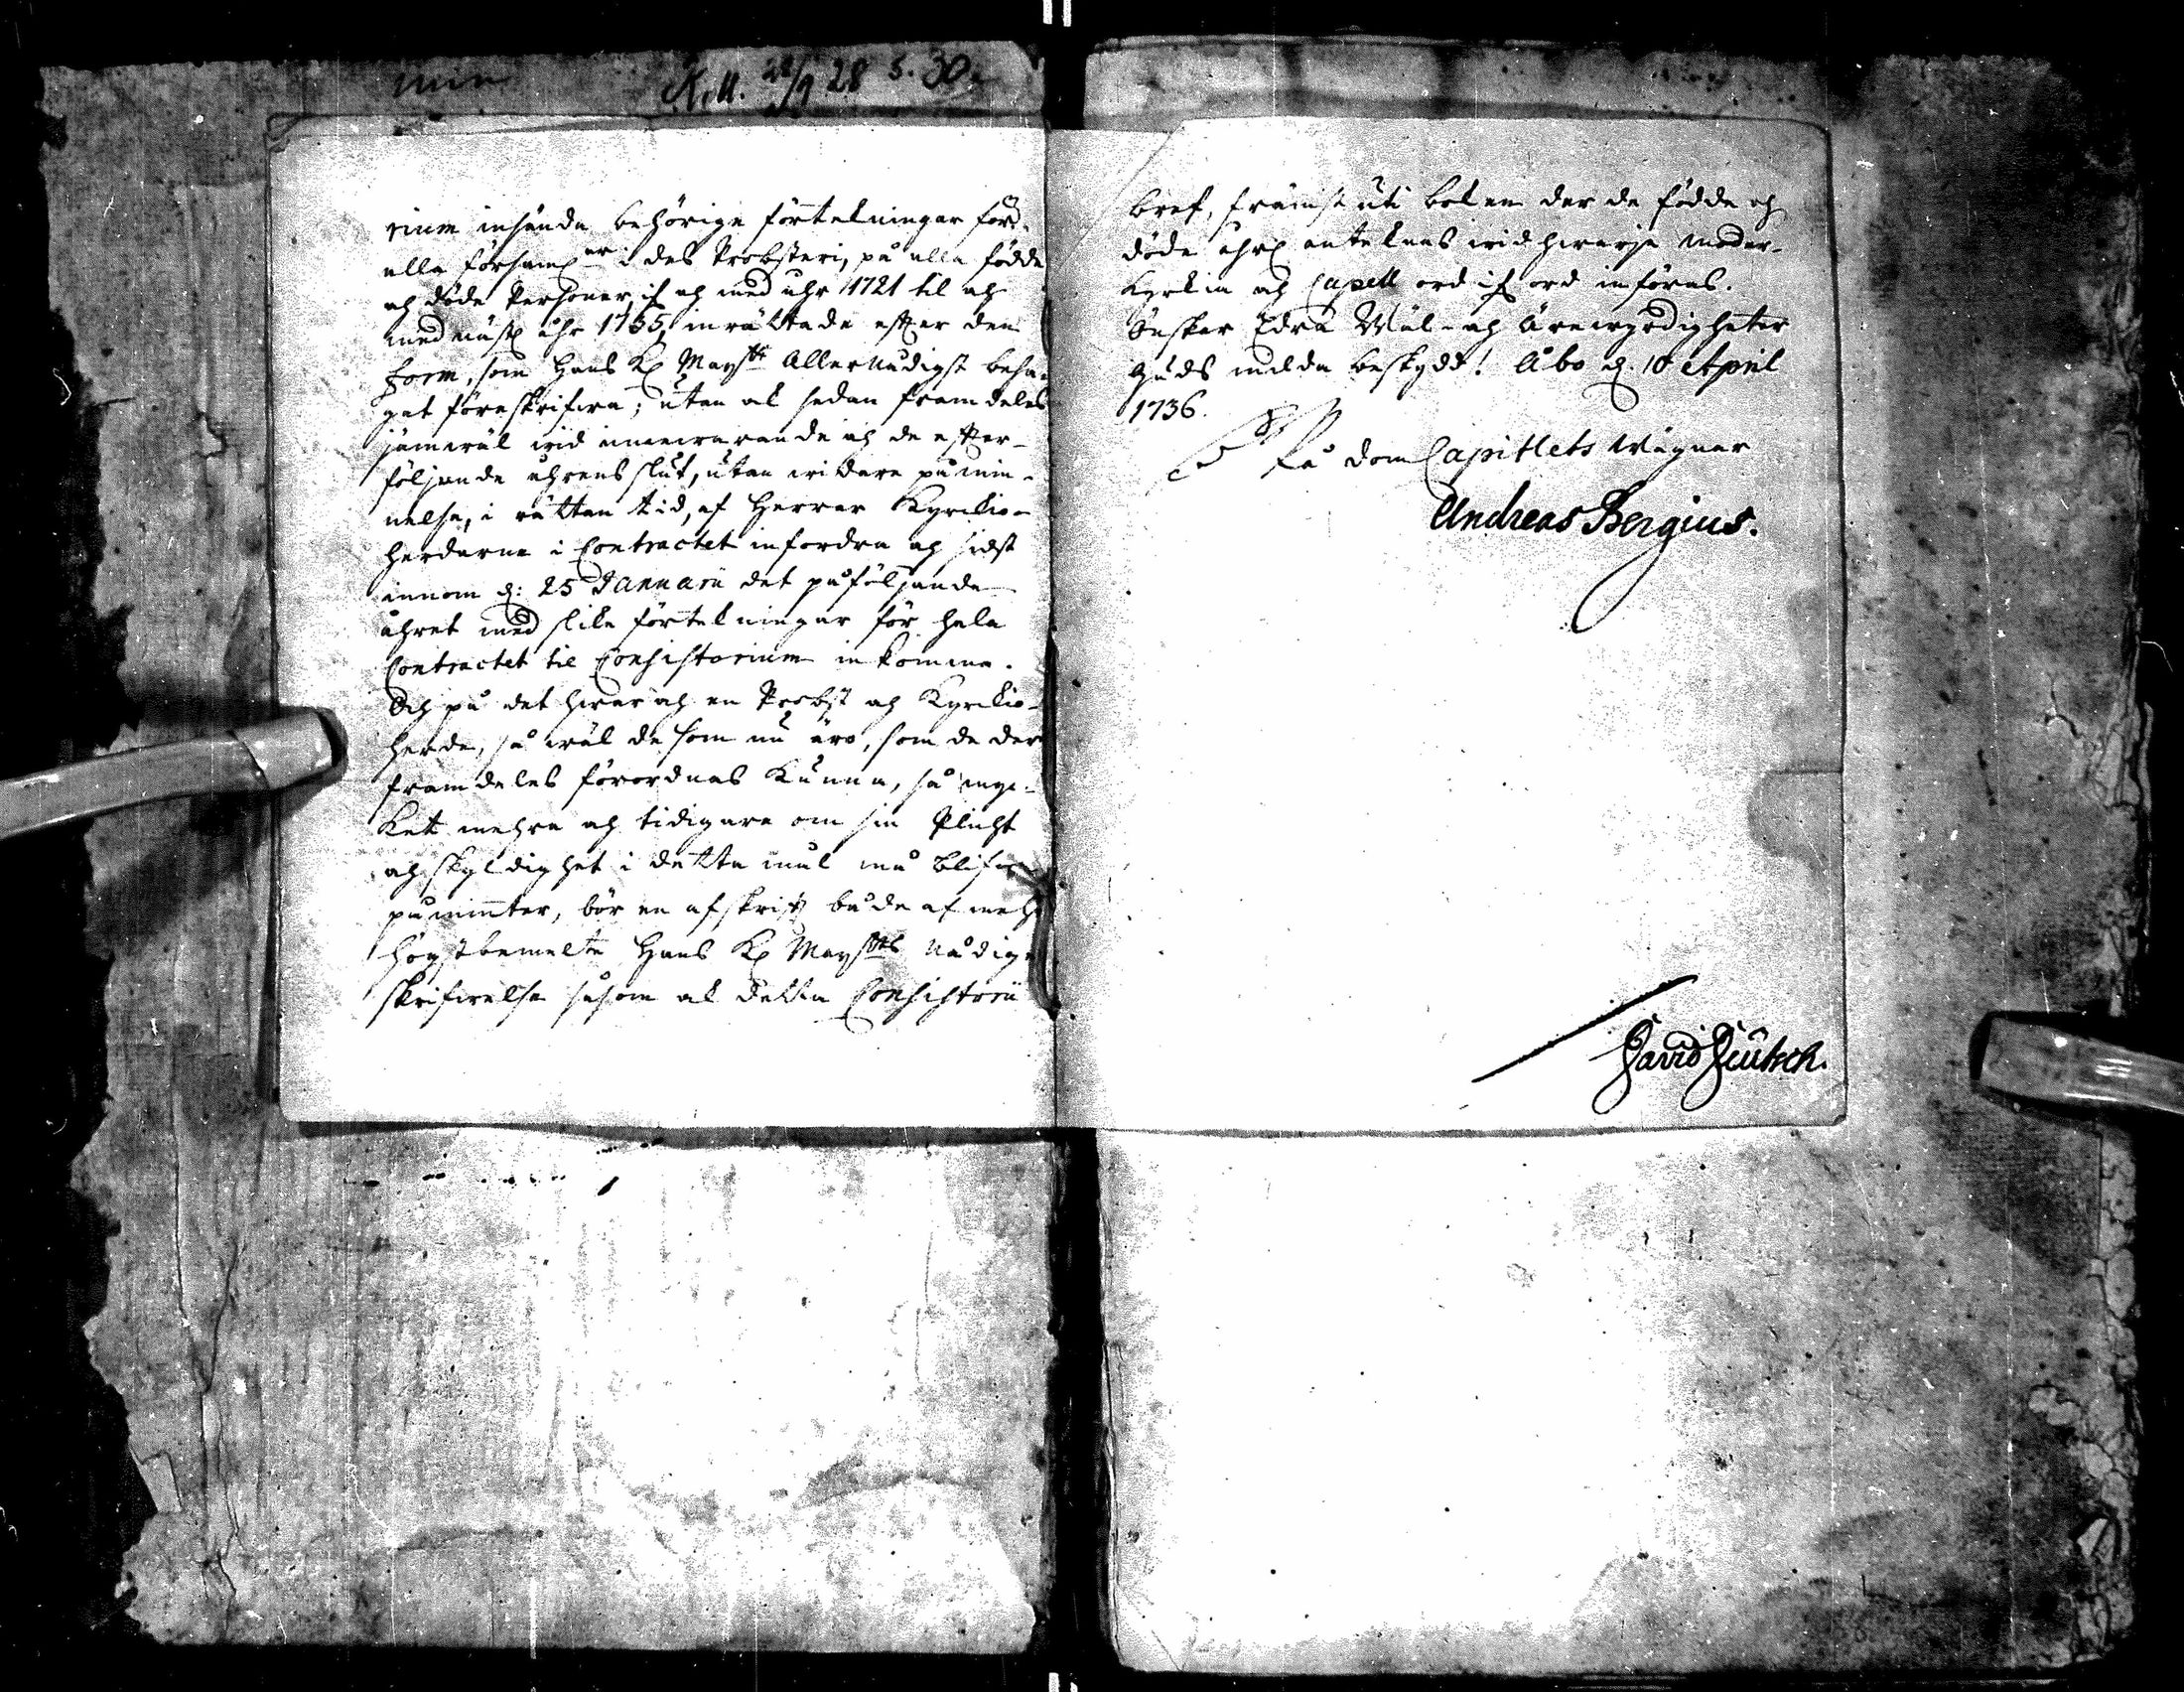 K.u. 28/9 28 s. 30.
rium insända behörige förtekningar för
alla församl:ar i des Probsteri, på alla födde
och döde Personer, if och med ahr 1721 til och
med näst: åhr 1735, inrättade efter den
Form, som Hans K. May:tt Allernådigst beha-
gat föreskrifwa; utan ock sedan framdeles
jämwäl wid innewarande och de efter-
följande åhrens slut, utan widare påmin-
nelse, i rättan tid, af Herrar Kyrckio-
herdarna i Contractet infordra och sidst
innom d: 25 Januarii det påföljande
åhret med slika förtekningar för hela
Contractet til Consistorium inkomma.
Och på det hwar och en Probst och Kyrckio-
herde, så wäl de som nu äro, som de der
framdeles förordnas kunna, så myc-
ket mehra och tidigare om sin Plicht
och skyldighet i detta mål må blifwa
påminter, bör en afskrift både af
högstbemelte Hans K. May:tts Nådige
skrifwelse såsom ock detta Consistorii
bref, främst uti boken der de födde och
döde åhrl. antecknas wid hwarje moder-
Kyrkia och Capell ord ifrån ord införas.
Önskar Edra Wäl- och Ärewyrdigheter
Guds milda beskydd! Åbo d. 10 April
1736.
På dom Capitlets wägnar
Andreas Bergius.
David Deutsch.